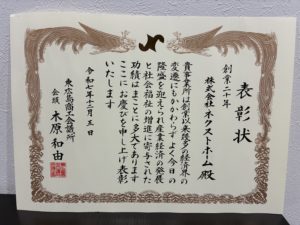 表彰状
創業二十年
株式会社ネクストホーム殿
貴事業所は創業以来幾多の経済界の
変遷にもかかわらずよく今日の
隆盛を迎えられ産業経済の発展
と社会福祉の増進に寄与された
功績はまことに多大であります
ここにお慶びを申し上げ表彰
いたします
令和七年十二月三日
東広島商工会議所
会頭 木原和由